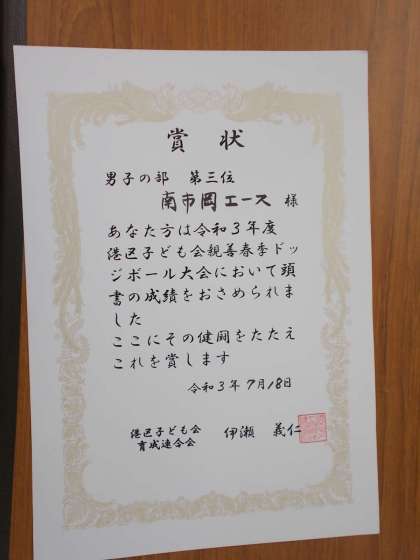 賞状
男子の部 第三位
南市岡エース 様
あなた方は令和3年度
港区子ども会親善春季ドッ
ジボール大会において頭
書の成績をおさめられま
した
ここにその健闘をたたえ
これを賞します
令和3年7月18日
港区子ども会
育成連合会
伊瀬 義仁